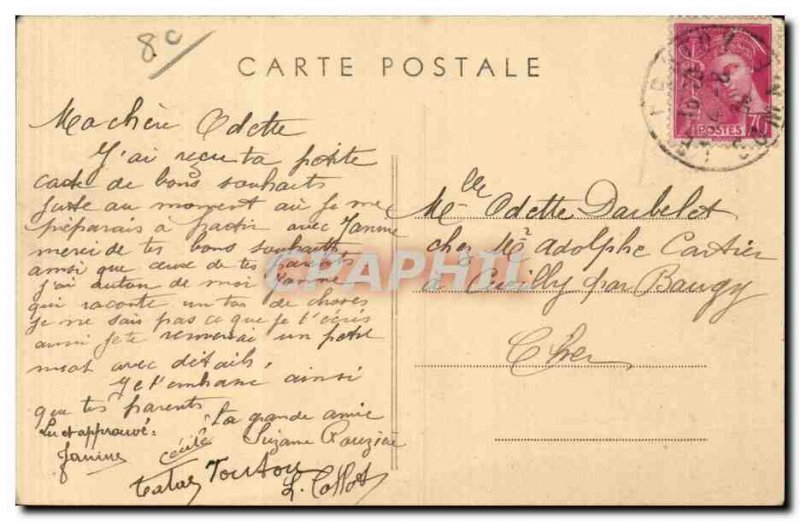 8c
CARTE POSTALE
Ma chère Odette
J'ai reçu ta petite
carte de bons souhaits
juste au moment où je me
préparais à partir avec Janine
merci de tes bons souhaits
ainsi que ceux de tes parents
j'ai autour de moi Janine
qui raconte un tas de choses
je ne sais pas ce que je t'écris
aussi je te remerciai un petit
mot avec détails,
Je t'embrasse ainsi
que tes parents
Ta grande amie
Lu et approuvé:
Suzanne
Janine
Cécile
Toutou
L. Collot
Mlle Odette Darbelet
chez Mr Adolphe Cartier
à Cuilly par Baugy
Cher
70
POSTES
CPAPHIL